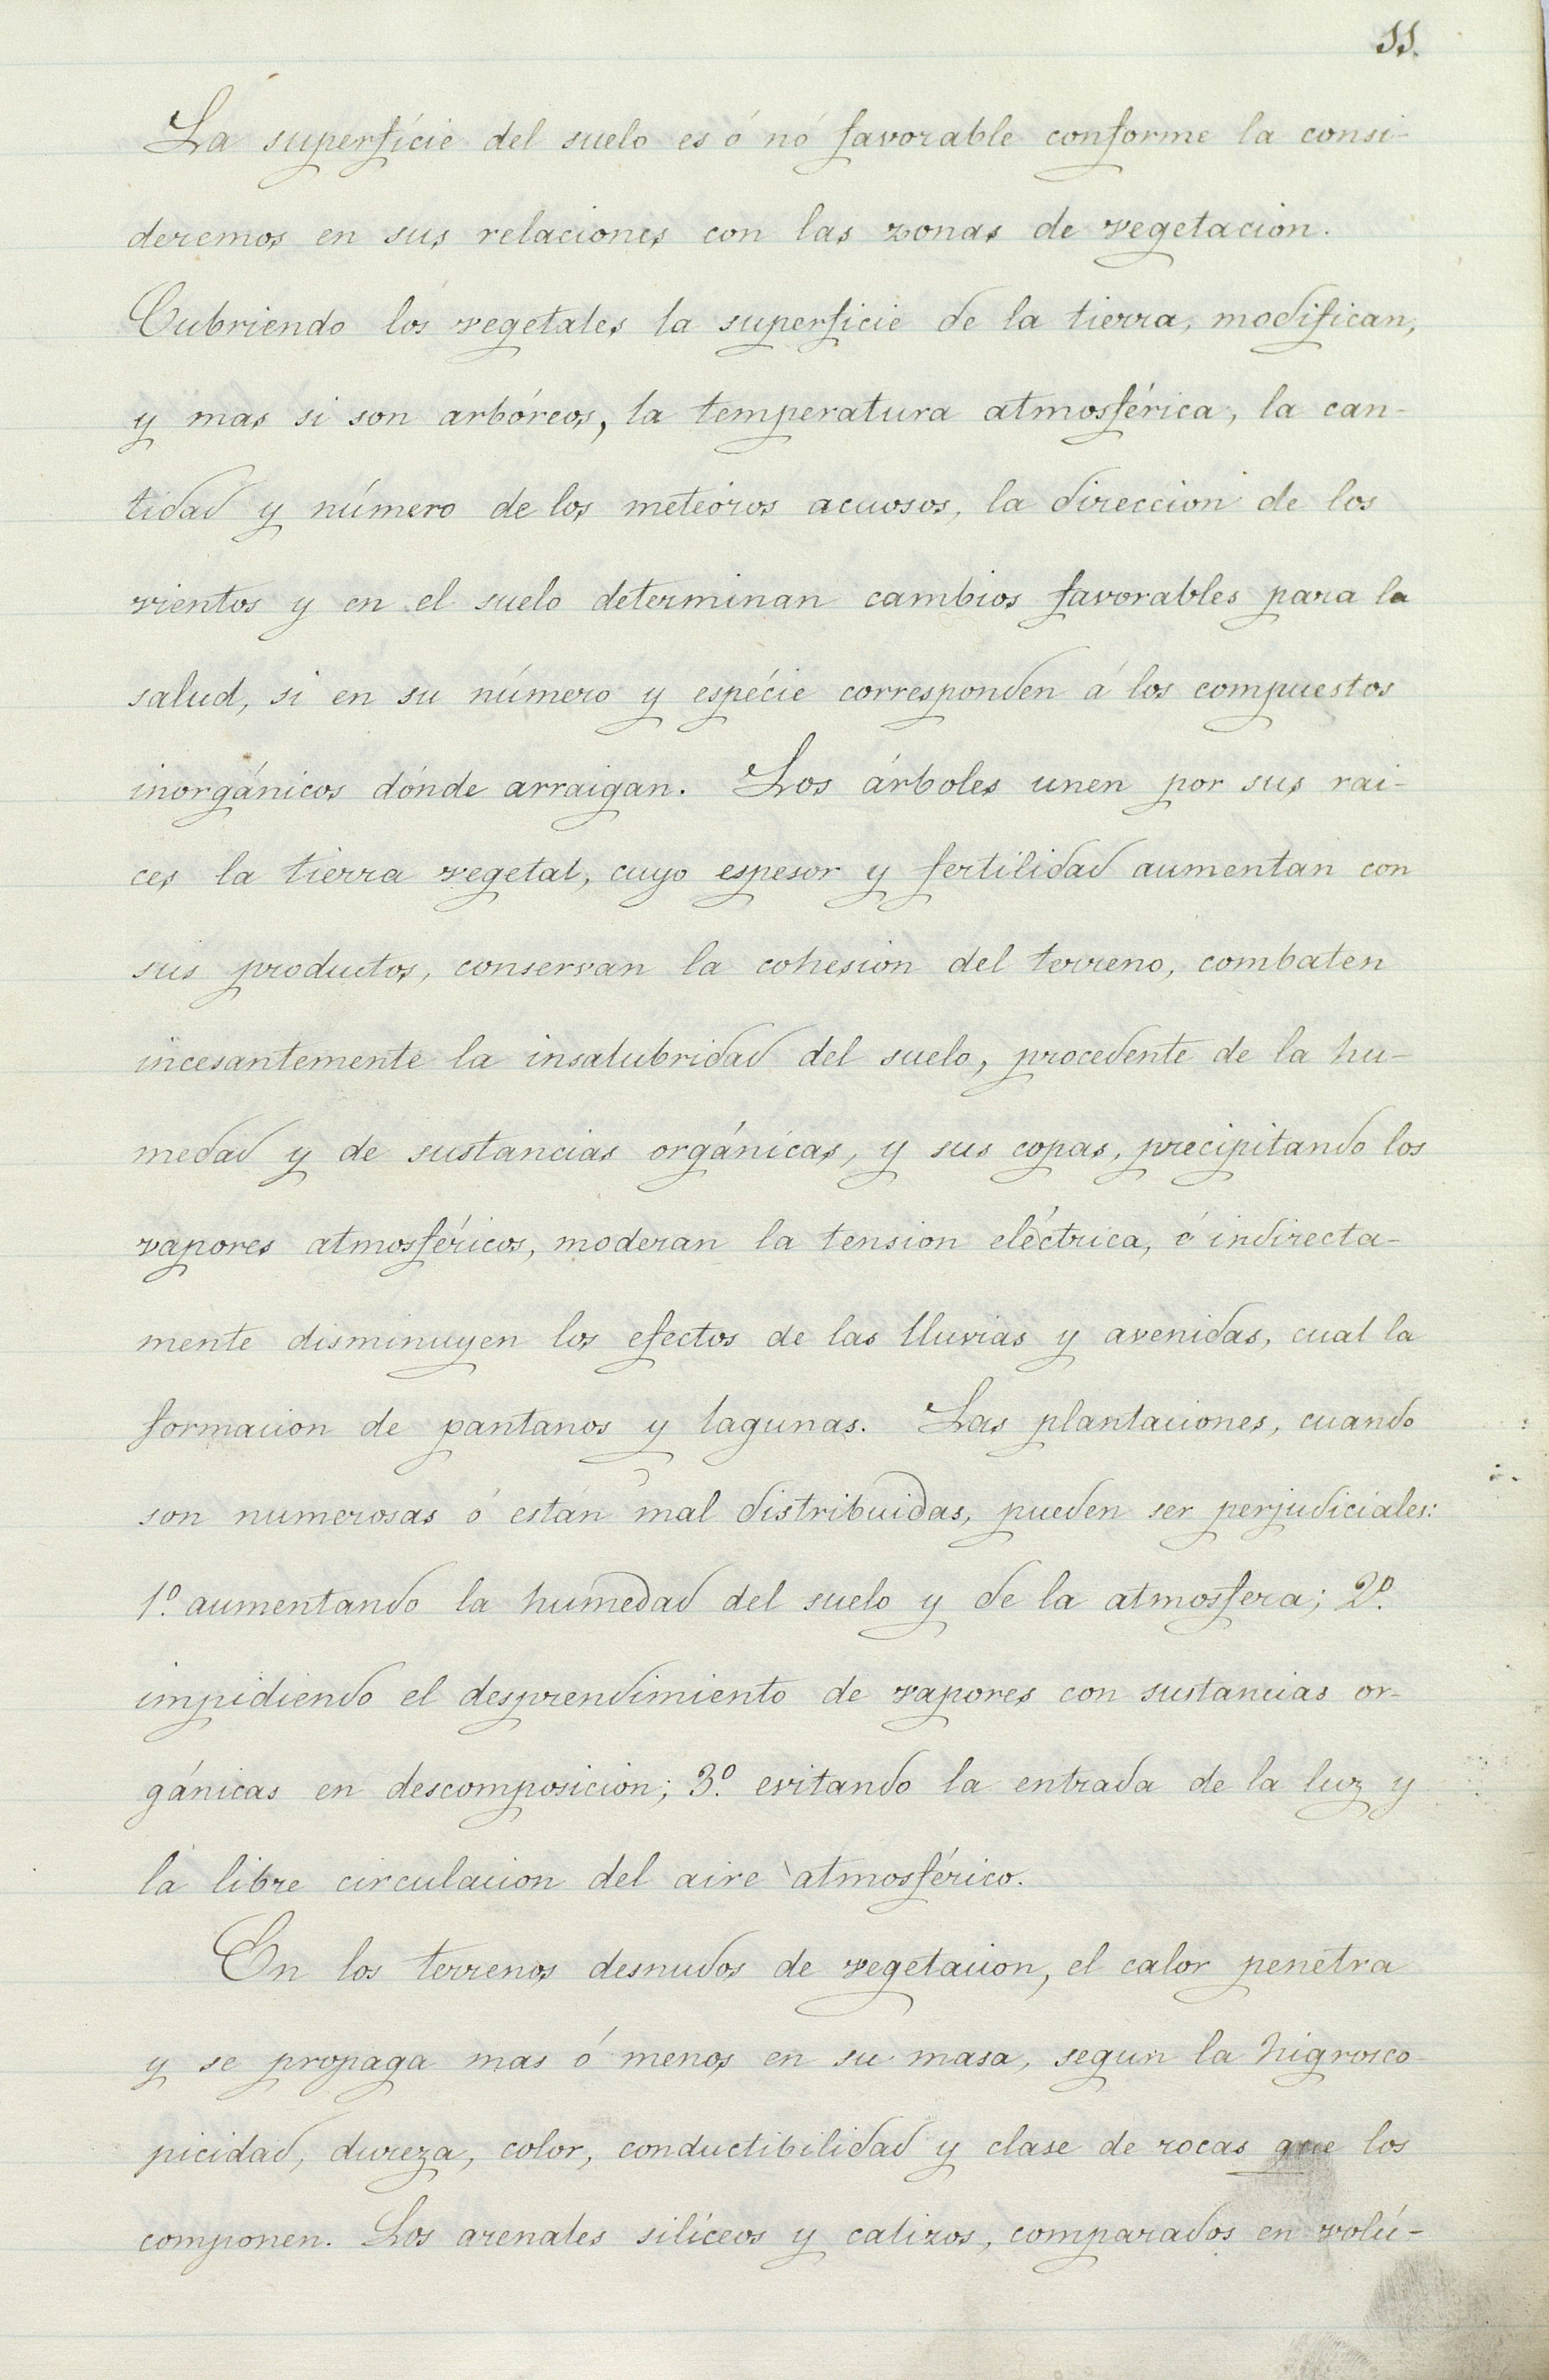 11.
La superfície del suelo es ó nó favorable conforme la consi-
deremos en sus relaciones con las zonas de vegetacion.
Cubriendo los vegetales la superficie de la tierra, modifican,
y mas si son arbóreos, la temperatura atmosférica, la can-
tidad y número de los meteóros acuosos, la direccion de los
vientos y en el suelo determinan cambios favorables para la
salud, si en su número y espécie corresponden á los compuestos
inorgánicos dónde arraigan. Los árboles unen por sus rai-
ces la tierra vegetal, cuyo espesor y fertilidad aumentan con
sus productos, conservan la cohesion del terreno, combaten
incesantemente la insalubridad del suelo, procedente de la hu-
medad y de sustancias orgánicas, y sus copas, precipitando los
vapores atmosféricos, moderan la tension eléctrica, é indirecta-
mente disminuyen los efectos de las lluvias y avenidas, cual la
formacion de pantanos y lagunas. Las plantaciones, cuando
son numerosas ó están mal distribuidas, pueden ser perjudiciales:
1.º aumentando la humedad del suelo y de la atmosfera; 2.º
impidiendo el desprendimiento de vapores con sustancias or-
gánicas en descomposicion; 3.º evitando la entrada de la luz y
la libre circulacion del aire atmosférico.
En los terrenos desnudos de vegetacion, el calor penetra
y se propaga mas ó menos en su masa, segun la higrosco-
picidad, dureza, color, conductibilidad y clase de rocas que los
componen. Los arenales silíceos y calizos, comparados en volú-